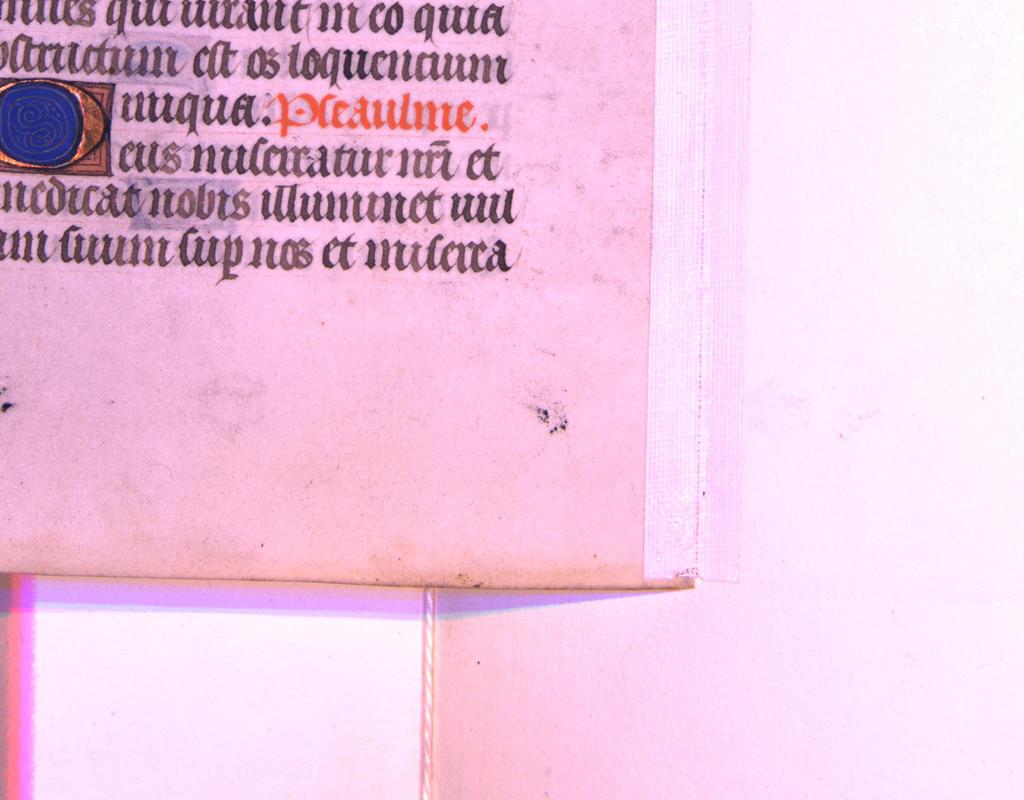 omnes qui iurant in eo quia
obstructum est os loquencium
iniqua. Pseaulme.
Deus misereatur nrī et
benedicat nobis illuminet uul
tum suum sup nos et miserea